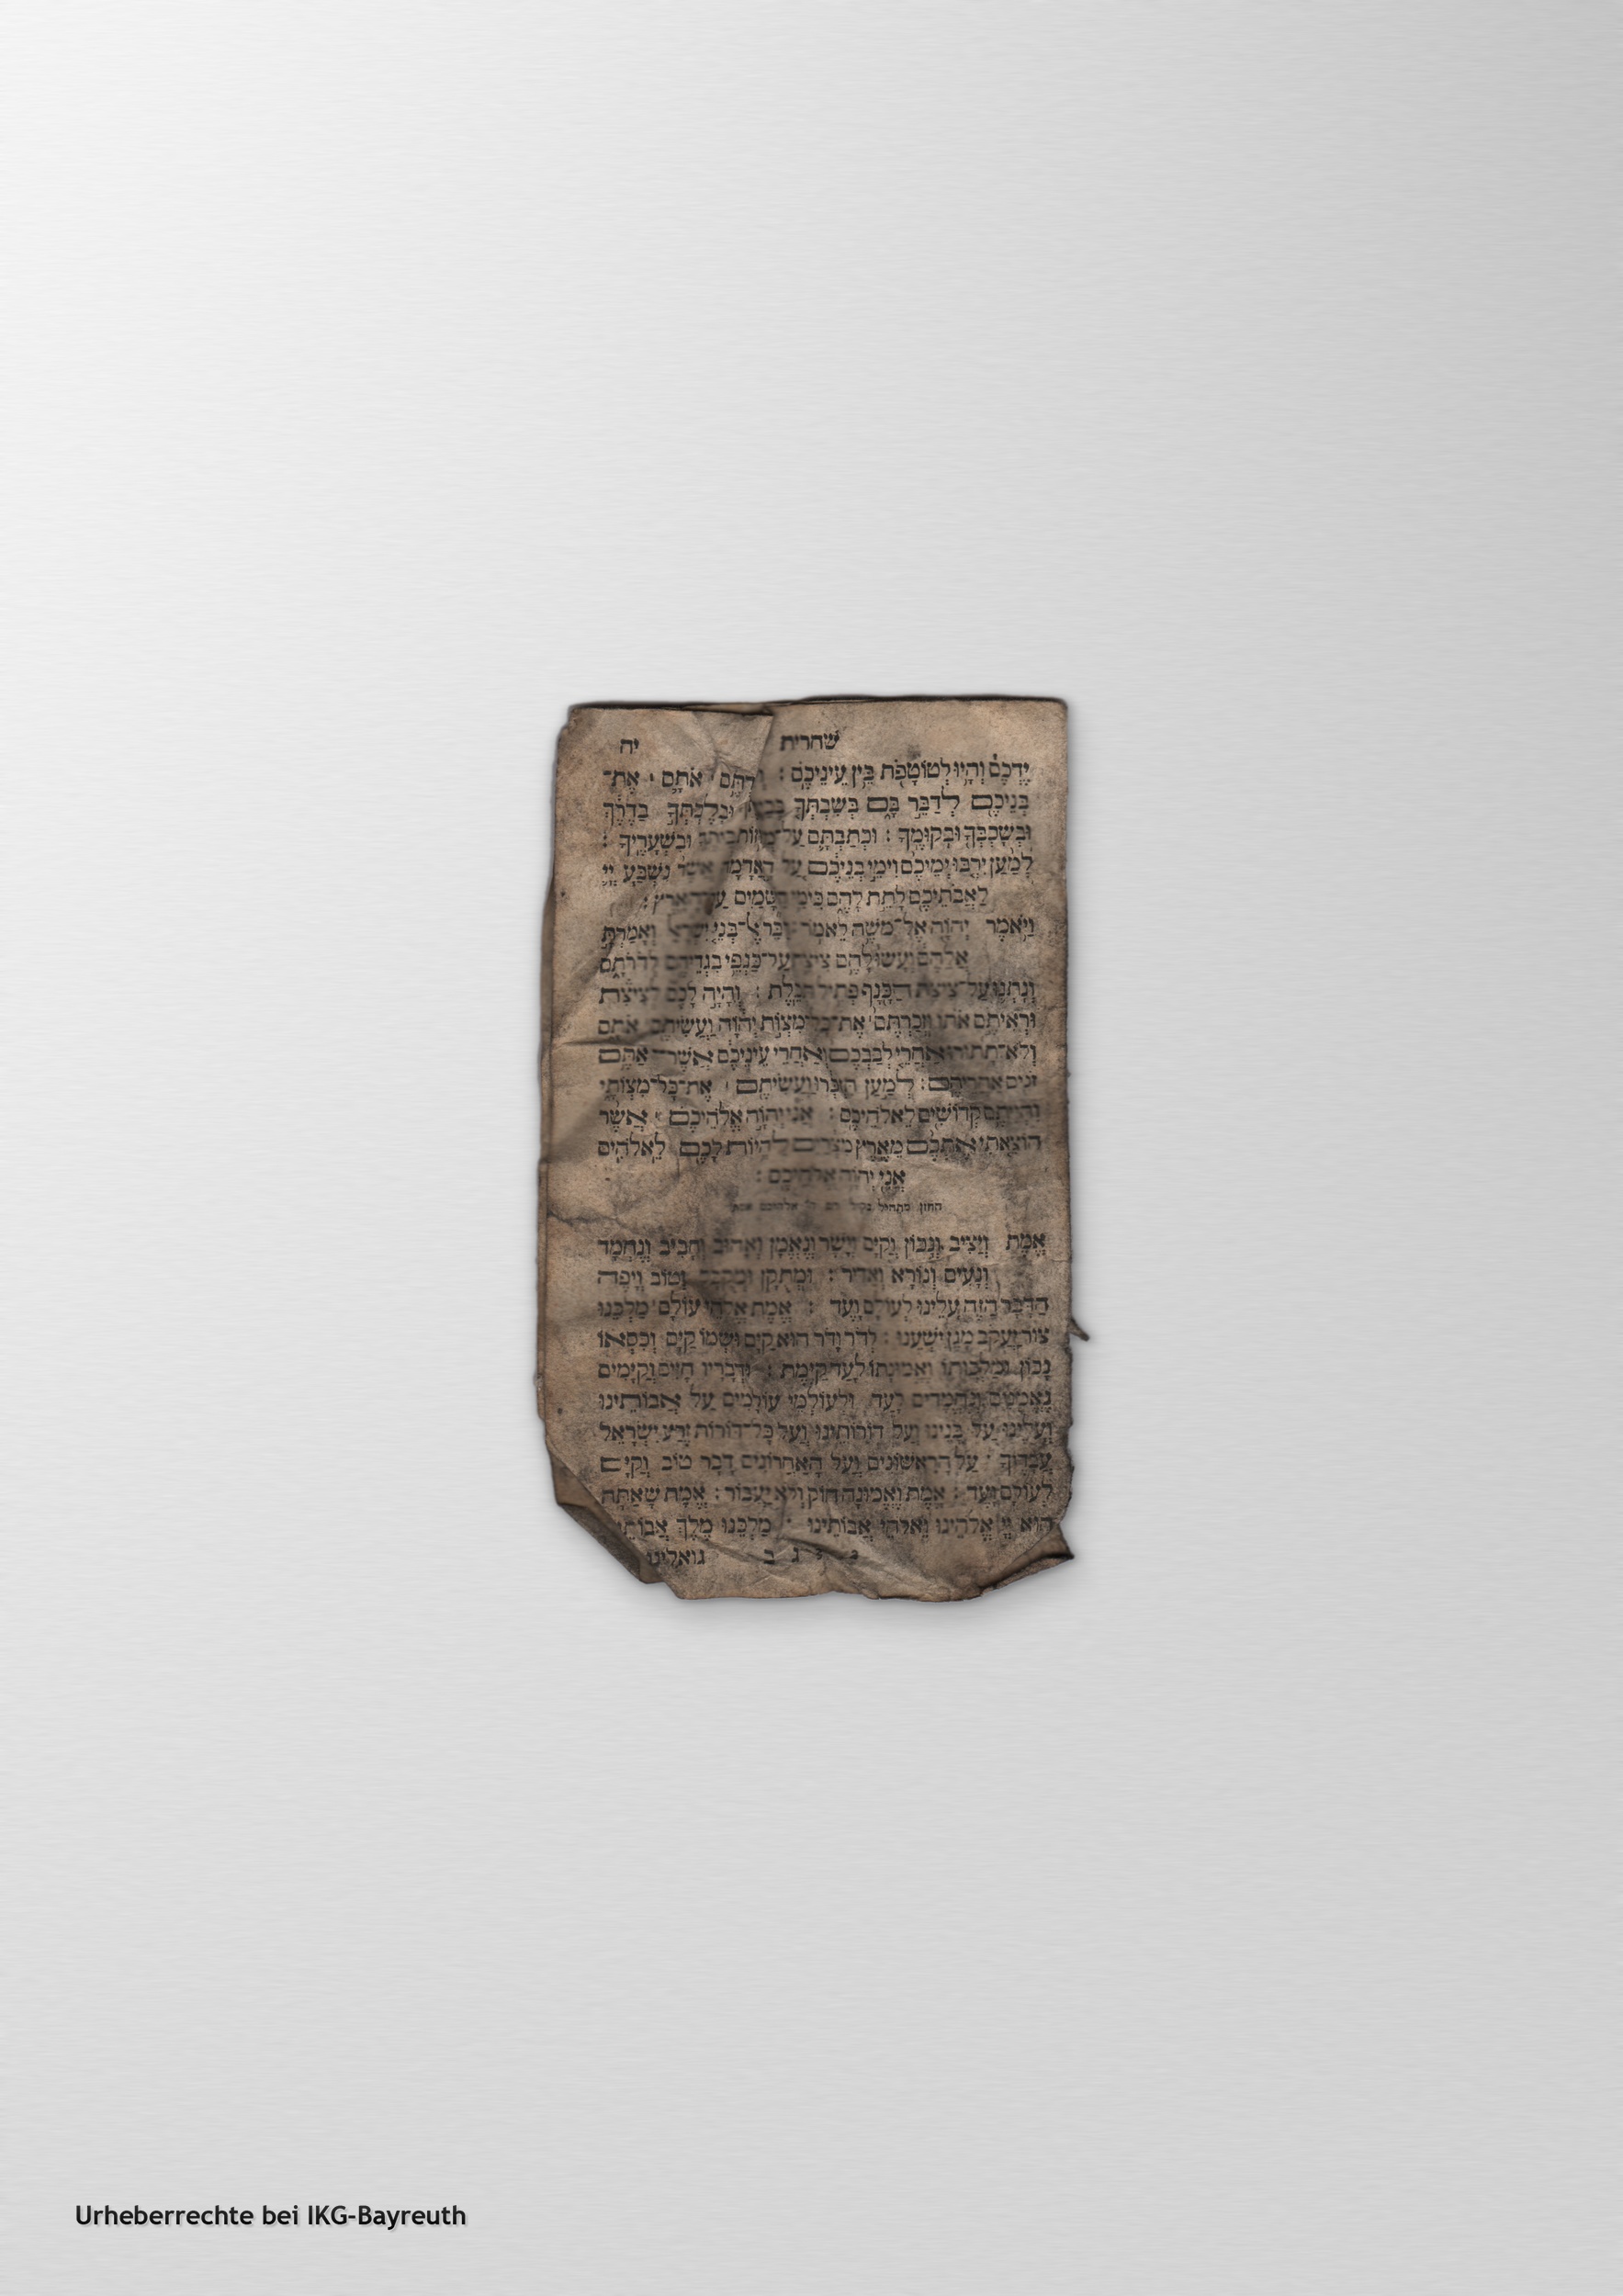 שחרית יה
יֶדְכֶם וְהָיוּ לְטוֹטָפֹת בֵּין עֵינֵיכֶם : אֹתָם אֶת־
בְּנֵיכֶם לְדַבֵּר בָּם בְּשִׁבְתְּךָ וּבְלֶכְתְּךָ בַדֶּרֶךְ
וּבְשָׁכְבְּךָ וּבְקוּמֶךָ : וּכְתַבְתָּם עַל־ וּבִשְׁעָרֶיךָ :
לְמַעַן יִרְבּוּ יְמֵיכֶם וִימֵי בְנֵיכֶם עַל הָאֲדָמָה אֲשֶׁר נִשְׁבַּע יְיָ
לַאֲבֹתֵיכֶם לָתֵת לָהֶם כִּימֵי הַשָּׁמַיִם עַל הָאָרֶץ :
וַיֹּאמֶר יְהוָה אֶל־מֹשֶׁה לֵּאמֹר : אֶל־בְּנֵי וְאָמַרְתָּ
אֲלֵהֶם וְעָשׂוּ לָהֶם צִיצִת עַל־כַּנְפֵי בִגְדֵיהֶם לְדֹרֹתָם
וְנָתְנוּ עַל־צִיצִת הַכָּנָף פְּתִיל תְּכֵלֶת : וְהָיָה לָכֶם לְצִיצִת
וּרְאִיתֶם אֹתוֹ וּזְכַרְתֶּם אֶת־כָּל־מִצְוֹת יְהוָה וַעֲשִׂיתֶם אֹתָם
וְלֹא־תָתוּרוּ אַחֲרֵי לְבַבְכֶם וְאַחֲרֵי עֵינֵיכֶם אֲשֶׁר־אַתֶּם
זֹנִים אַחֲרֵיהֶם : לְמַעַן תִּזְכְּרוּ וַעֲשִׂיתֶם אֶת־כָּל־מִצְוֹתָי
וִהְיִיתֶם קְדוֹשִׁים לֵאלֹהֵיכֶם : אֲנִי יְהוָה אֱלֹהֵיכֶם אֲשֶׁר
הוֹצֵאתִי אֶתְכֶם מֵאֶרֶץ מִצְרַיִם לִהְיוֹת לָכֶם לֵאלֹהִים
אֲנִי יְהוָה אֱלֹהֵיכֶם :
החזן מתחיל אלהיכם אמת
אֱמֶת וְיַצִּיב וְנָכוֹן וְקַיָּם וְיָשָׁר וְנֶאֱמָן וְאָהוּב וְחָבִיב וְנֶחְמָד
וְנָעִים וְנוֹרָא וְאַדִּיר : וּמְתֻקָּן וּמְקֻבָּל וְטוֹב וְיָפֶה
הַדָּבָר הַזֶּה עָלֵינוּ לְעוֹלָם וָעֶד : אֱמֶת אֱלֹהֵי עוֹלָם מַלְכֵּנוּ
צוּר יַעֲקֹב מָגֵן יִשְׁעֵנוּ : לְדֹר וָדֹר הוּא קַיָּם וּשְׁמוֹ קַיָּם וְכִסְאוֹ
נָכוֹן וּמַלְכוּתוֹ וֶאֱמוּנָתוֹ לָעַד קַיֶּמֶת : וּדְבָרָיו חָיִים וְקַיָּמִים
נֶאֱמָנִים וְנֶחֱמָדִים לָעַד וּלְעוֹלְמֵי עוֹלָמִים עַל אֲבוֹתֵינוּ
וְעָלֵינוּ עַל בָּנֵינוּ וְעַל דּוֹרוֹתֵינוּ וְעַל כָּל־דּוֹרוֹת זֶרַע יִשְׂרָאֵל
עֲבָדֶיךָ : עַל הָרִאשׁוֹנִים וְעַל הָאַחֲרוֹנִים דָּבָר טוֹב וְקַיָּם
לְעוֹלָם וָעֶד : אֱמֶת וֶאֱמוּנָה חוֹק וְלֹא יַעֲבוֹר : אֱמֶת שָׁאַתָּה
הוּא יְיָ אֱלֹהֵינוּ וֵאלֹהֵי אֲבוֹתֵינוּ : מַלְכֵּנוּ מֶלֶךְ אֲבוֹתֵינוּ
ג ב גואלינו
Urheberrechte bei IKG-Bayreuth